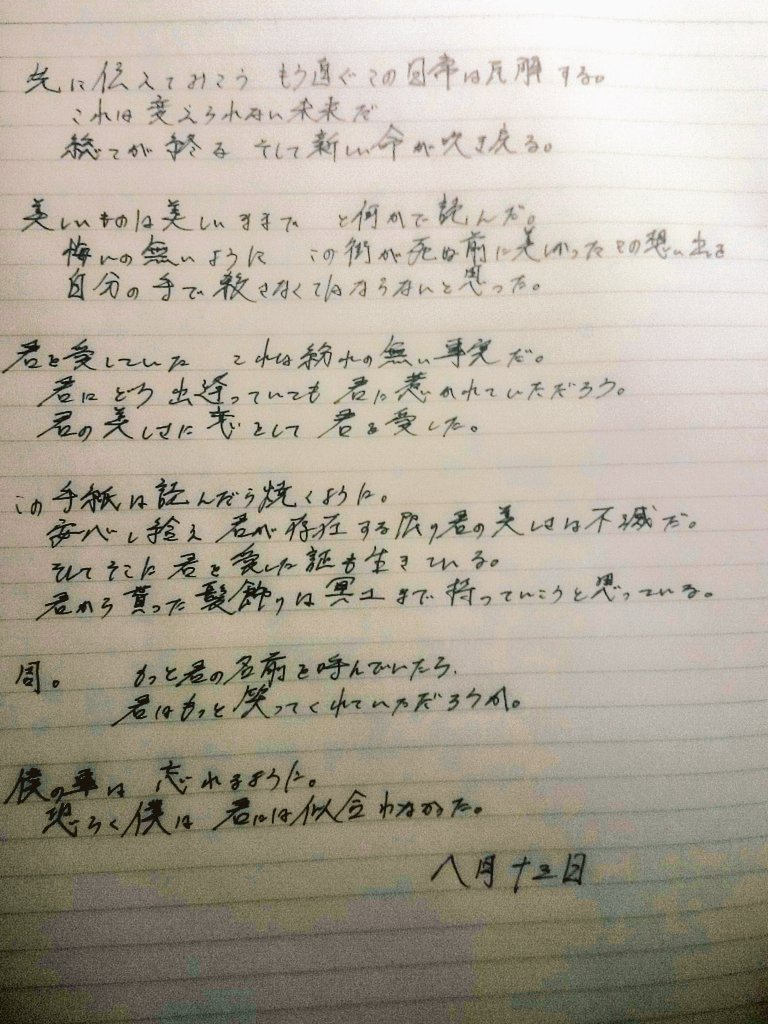 先に伝えておこう もう直ぐこの日常は瓦解する。
これは変えられない未来だ
総てが終る そして新しい命が吹き戻る。
美しいものは美しいままで と何かで読んだ。
悔いの無いように この街が死ぬ前に美しかった その想い出を
自分の手で殺さなくてはならないと思った。
君を愛していた これは紛れの無い事実だ。
君にどう出逢っていても 君に惹かれていただろう。
君の美しさに恋をして 君を愛した。
この手紙は読んだら焼くように。
安心し給え 君が存在する限り君の美しさは不滅だ。
そしてそこに君を愛した証も生きている。
君から貰った髪飾りは冥土まで持っていこうと思っている。
周。 もっと君の名前を呼んでいたら、
君はもっと笑ってくれていただろうか。
僕の事は 忘れるように。
恐らく僕は 君には似合わなかった。
八月十三日